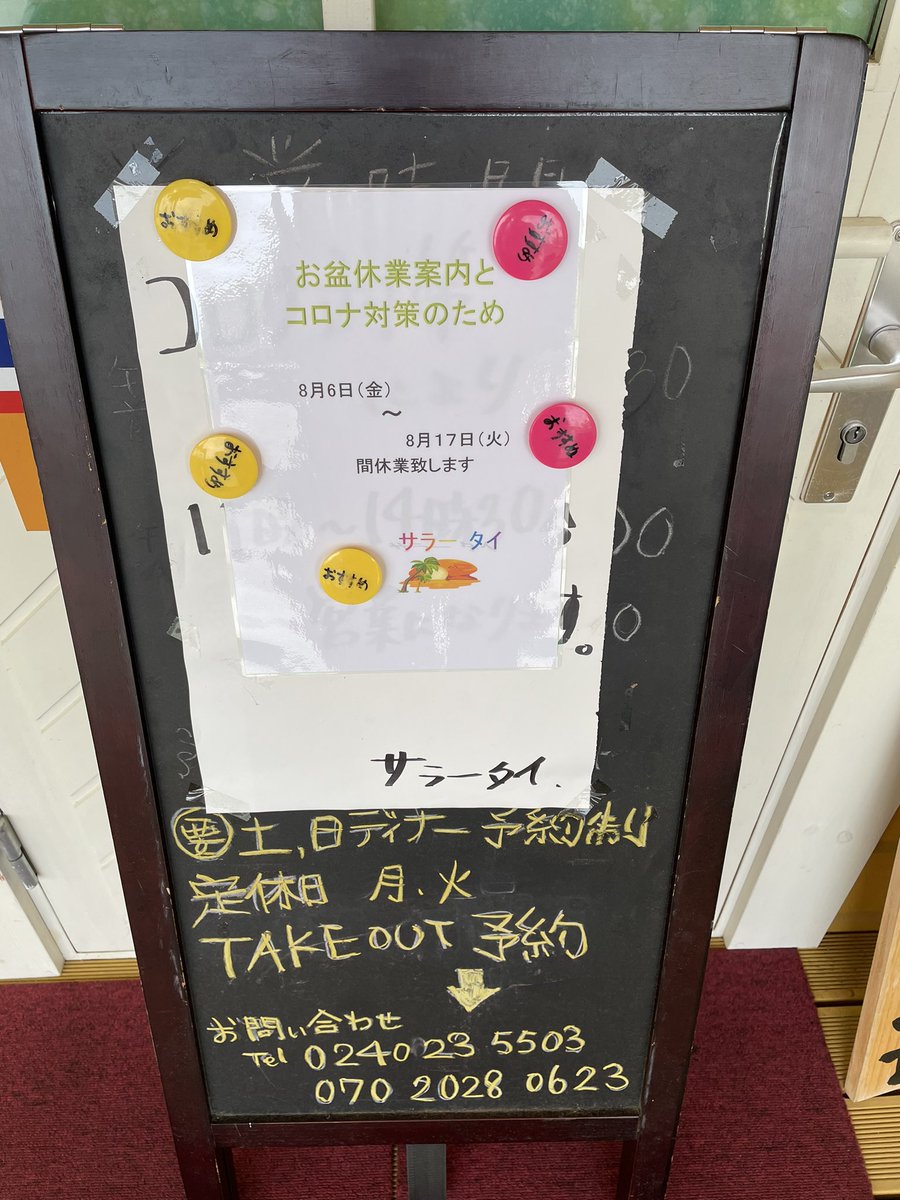 おすすめ
おすすめ
お盆休業案内と
コロナ対策のため
8月6日(金)
～
8月17日(火)
間休業致します
おすすめ
おすすめ
サラー タイ
おすすめ
す。
サラータイ.
㊕土,日ディナー 予約制
定休日 月.火
TAKE OUT 予約
お問い合わせ
Tel 0240 23 5503
070 2028 0623